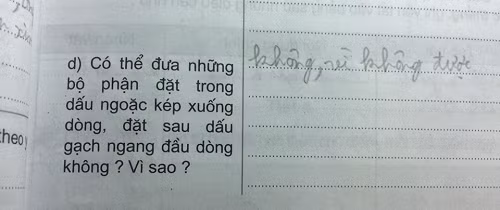 d) Có thể đưa những
bộ phận đặt trong
dấu ngoặc kép xuống
dòng, đặt sau dấu
gạch ngang đầu dòng
không ? Vì sao ?
không, vì không được
theo